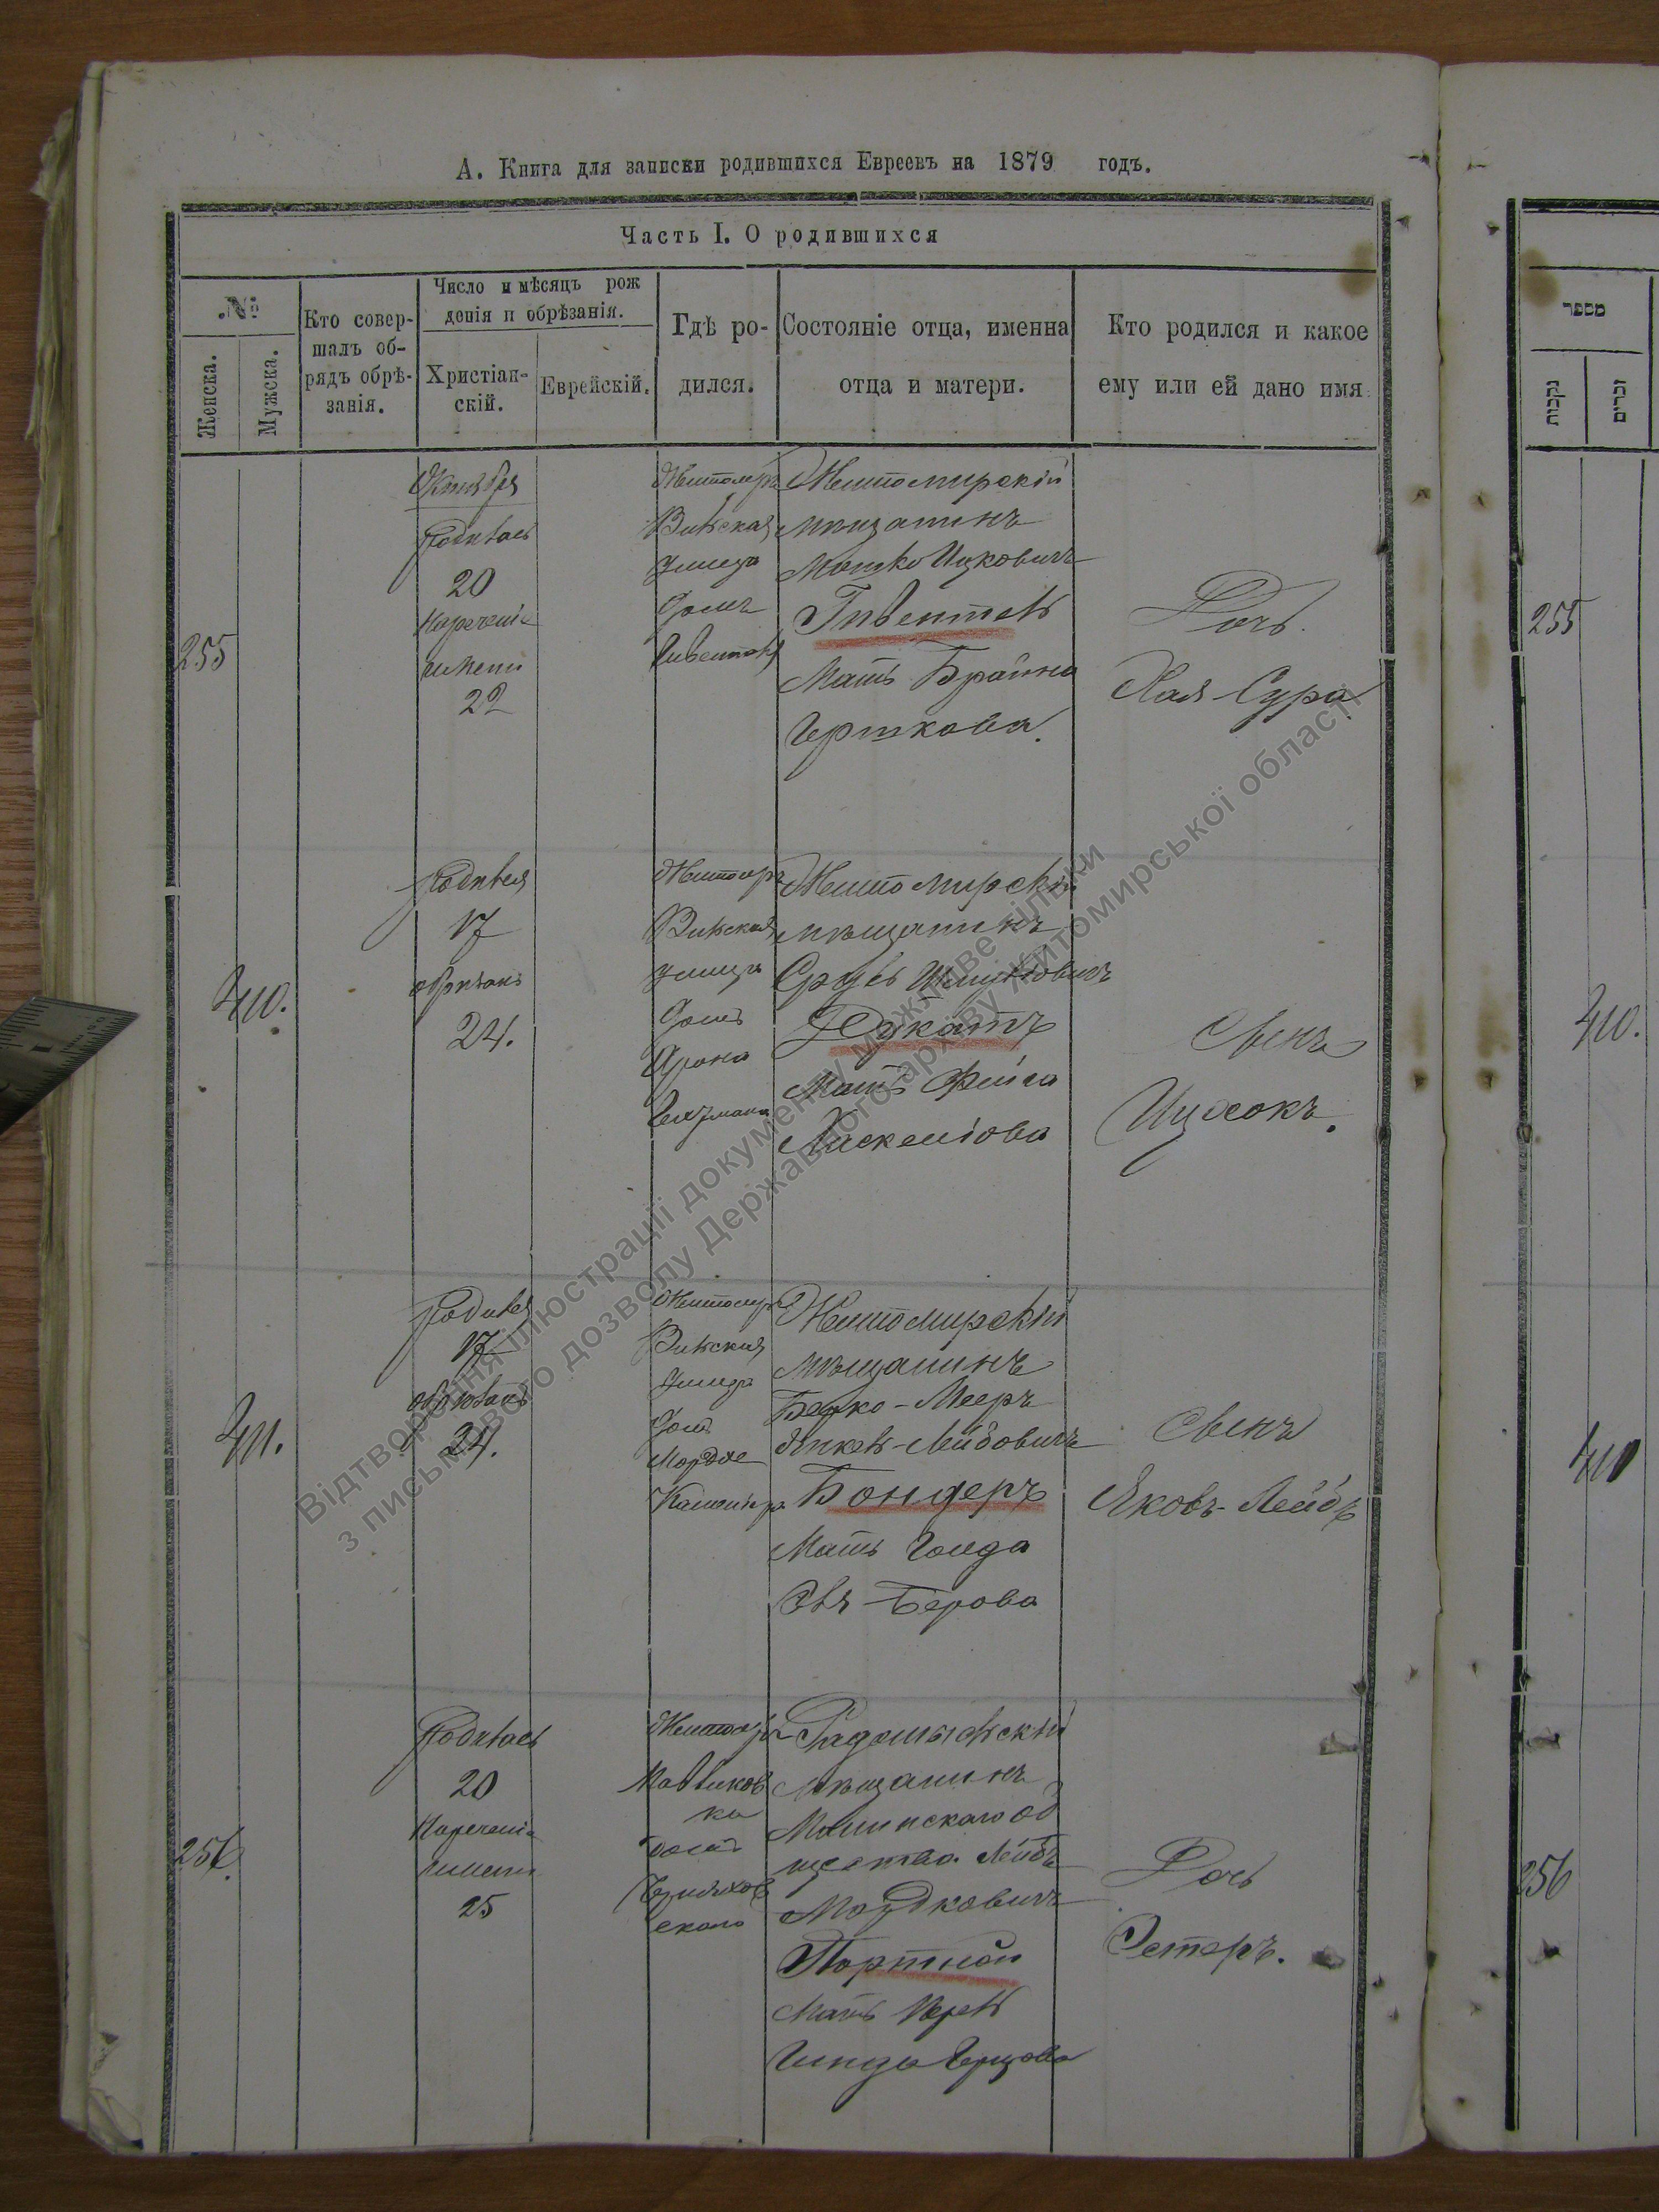 А. Книга для записки родившихся Евреевъ на 1879 годъ.
Часть I. О родившихся
№
Женска.
Мужска.
Кто совер-
шалъ об-
рядъ обрѣ-
занія.
Число и мѣсяцъ рож
денія и обрѣзанія.
Христіан-
скій.
Еврейскій.
Гдѣ ро-
дился.
Состояніе отца, именна
отца и матери.
Кто родился и какое
ему или ей дано имя
מספר
נקבות
זכרים
255
Октября
Родилась
20
Наречение
имени
22
Житомиръ
Вильская
улица
домъ
Житомирскій
мѣщанинъ
Мошко Ицковичъ
Гивентель
Мать Брайна
Гершкова.
Дочь.
Хая-Сура
255
410.
Родился
17
обрѣзанъ
24.
Житомиръ
Вильская
улица
домъ
Арона
Житомирскій
мѣщанинъ
Сруль Шмулевичъ
Дукатъ
Мать Фейга
Хаскелiова
Сынъ
Ицхокъ.
410.
411.
Родился
17
обрѣзанъ
24.
Житомиръ
Вильская
улица
домъ
Мордхе
Житомирскій
мѣщанинъ
Берко-Мееръ
Янкель-Лейбовичъ
Бондеръ
Мать Голда
Берова
Сынъ
Яковъ-Лейбъ
411
256.
Родилась
20
Наречение
имени
25
Житомиръ
домъ
Радомысльскій
мѣщанинъ
Малинскаго об
щества Лейбъ
Мордковичъ
Портной
Мать Перль
Гинда Герцова
Дочь
Эстеръ.
256
Відтворення ілюстрації документу можливе тільки
з письмового дозволу Державного архіву Житомирської області